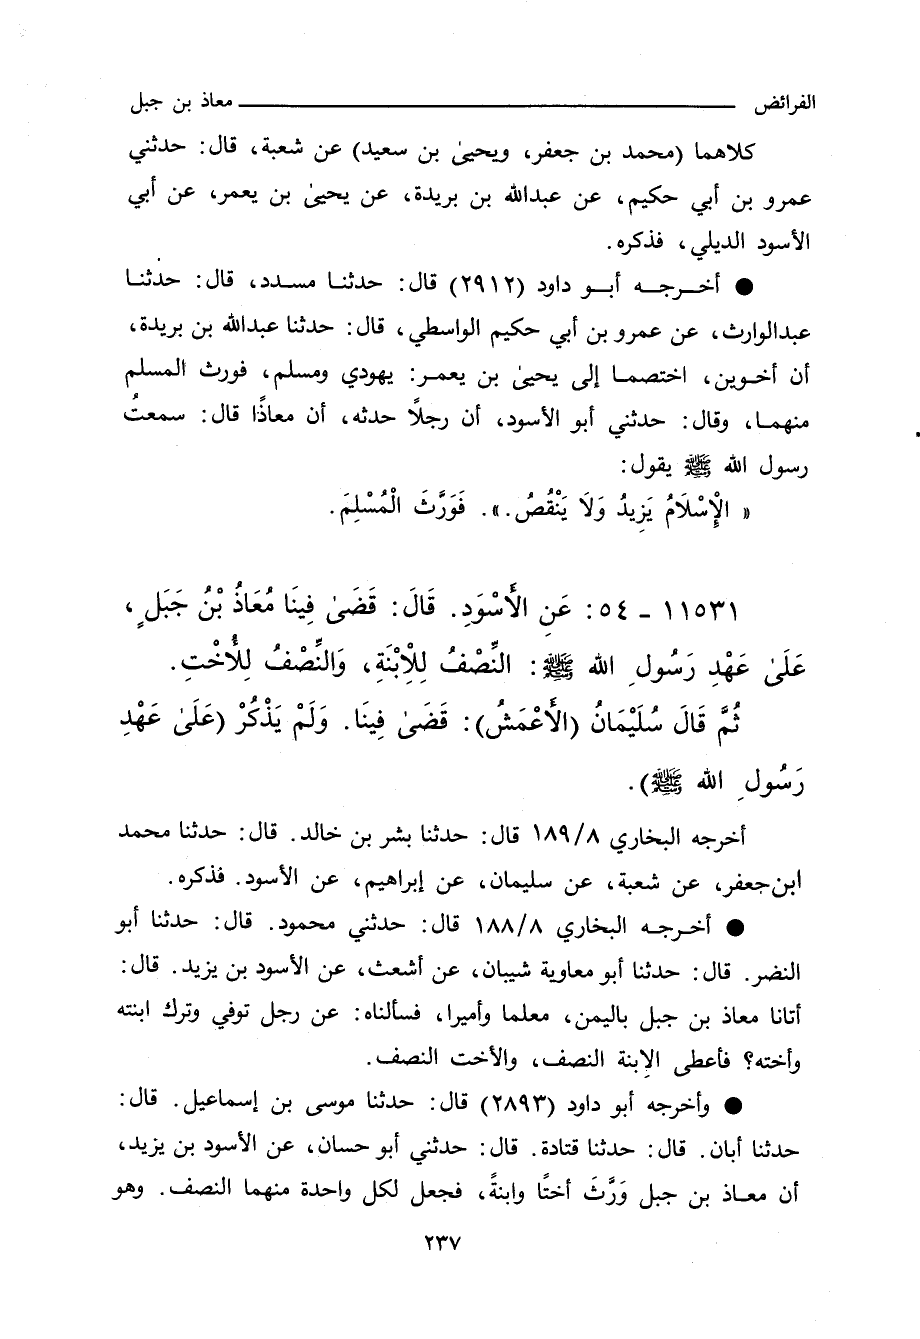 الفرائض ــــــــــ معاذ بن جبل
كلاهما (محمد بن جعفر، ويحيىٰ بن سعيد) عن شعبة، قال: حدثني
عمرو بن أبي حكيم، عن عبدالله بن بريدة، عن يحيىٰ بن يعمر، عن أبي
الأسود الديلي، فذكره.
● أخرجه أبو داود (٢٩١٢) قال: حدثنا مسدد، قال: حدثنا
عبدالوارث، عن عمرو بن أبي حكيم الواسطي، قال: حدثنا عبدالله بن بريدة،
أن أخوين، اختصما إلى يحيىٰ بن يعمر: يهودي ومسلم، فورث المسلم
منهما، وقال: حدثني أبو الأسود، أن رجلاً حدثه، أن معاذًا قال: سمعتُ
رسول الله ﷺ يقول:
« الْإِسْلَامُ يَزِيدُ وَلَا يَنْقُصُ.». فَوَرَّثَ الْمُسْلِمَ.
١١٥٣١ - ٥٤: عَنِ الْأَسْوَدِ. قَالَ: قَضَىٰ فِينَا مُعَاذُ بْنُ جَبَلٍ،
عَلَىٰ عَهْدِ رَسُولِ الله ﷺ: النِّصْفُ لِلْاِبْنَةِ، وَالنِّصْفُ لِلْأُخْتِ.
ثُمَّ قَالَ سُلَيْمَانُ (الْأَعْمَشُ): قَضَىٰ فِينَا. وَلَمْ يَذْكُرْ (عَلَىٰ عَهْدِ
رَسُولِ الله ﷺ).
أخرجه البخاري ١٨٩/٨ قال: حدثنا بشر بن خالد. قال: حدثنا محمد
ابن جعفر، عن شعبة، عن سليمان، عن إبراهيم، عن الأسود. فذكره.
● أخرجه البخاري ١٨٨/٨ قال: حدثني محمود. قال: حدثنا أبو
النضر. قال: حدثنا أبو معاوية شيبان، عن أشعث، عن الأسود بن يزيد. قال:
أتانا معاذ بن جبل باليمن، معلما وأميرا، فسألناه: عن رجل توفي وترك ابنته
وأخته؟ فأعطى الإبنة النصف، والأخت النصف.
● وأخرجه أبو داود (٢٨٩٣) قال: حدثنا موسى بن إسماعيل. قال:
حدثنا أبان. قال: حدثنا قتادة. قال: حدثني أبو حسان، عن الأسود بن يزيد،
أن معاذ بن جبل وَرَّثَ أختًا وابنةً، فجعل لكل واحدة منهما النصف. وهو
٢٣٧